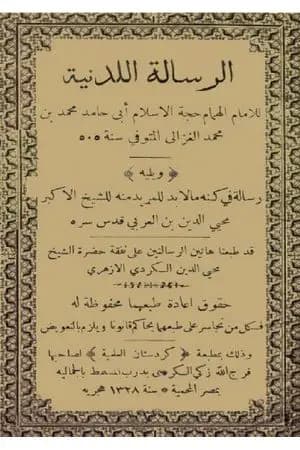 الرسالة اللدنية
للامام الهمام حجة الاسلام أبى حامد محمد بن
محمد الغزالى المتوفي سنة ٥٠٥
﴿ ويليه ﴾
رسالة في كنه مالابد للمريد منه للشيخ الاكبر
محيي الدين بن العربي قدس سره
قد طبعنا هاتين الرسالتين على نفقة حضرة الشيخ
محيي الدين الكردي الازهري
حقوق اعادة طبعهما محفوظة له
فكل من تجاسر على طبعهما يحاكم قانونا ويلزم بالتعويض
وذلك بمطبعة ﴿ كردستان العلمية ﴾ لصاحبها
فرج الله زكي الكردي بدرب المسمط بالجمالية
بمصر المحمية سنة ١٣٢٨ هجريه